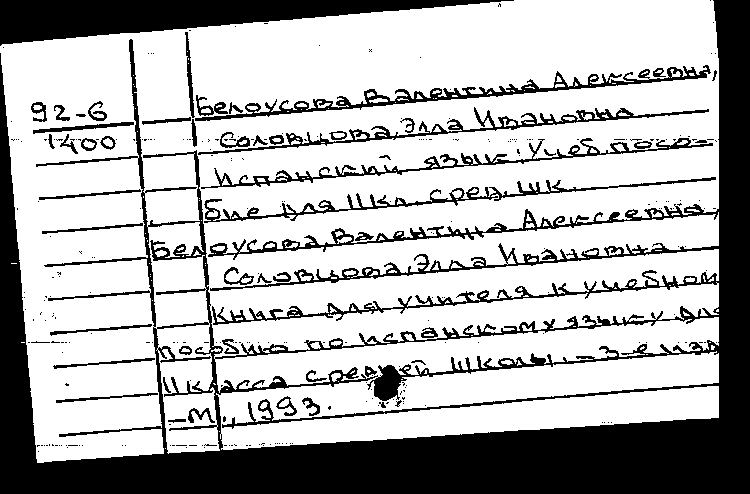 92-6
1400
Белоусова, Валентина Алексеевна,
Соловцова, Элла Ивановна.
Испанский язык: Учеб. посо-
бие для 11кл. сред. шк.
Белоусова, Валентина Алексеевна,
Соловцова, Элла Ивановна.
Книга для учителя к учебном
пособию по испанскому языку для
11 класса средней школы. – 3-е изд
–М., 1993.